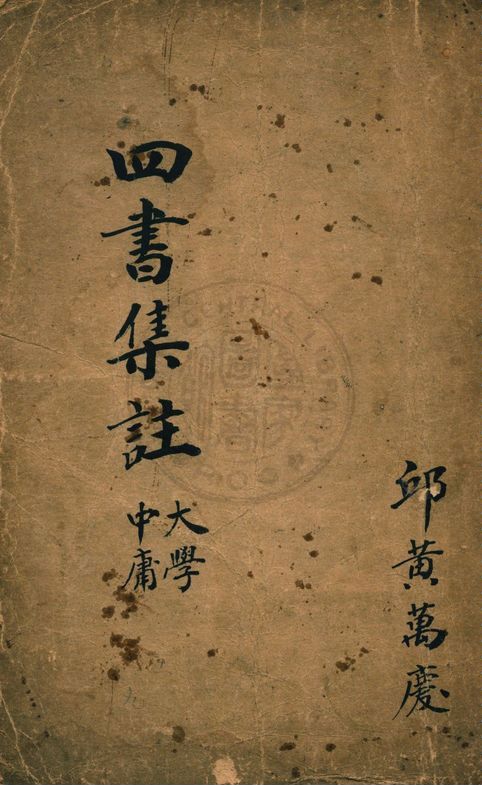 邱黃萬慶
四書集註
大學
中庸